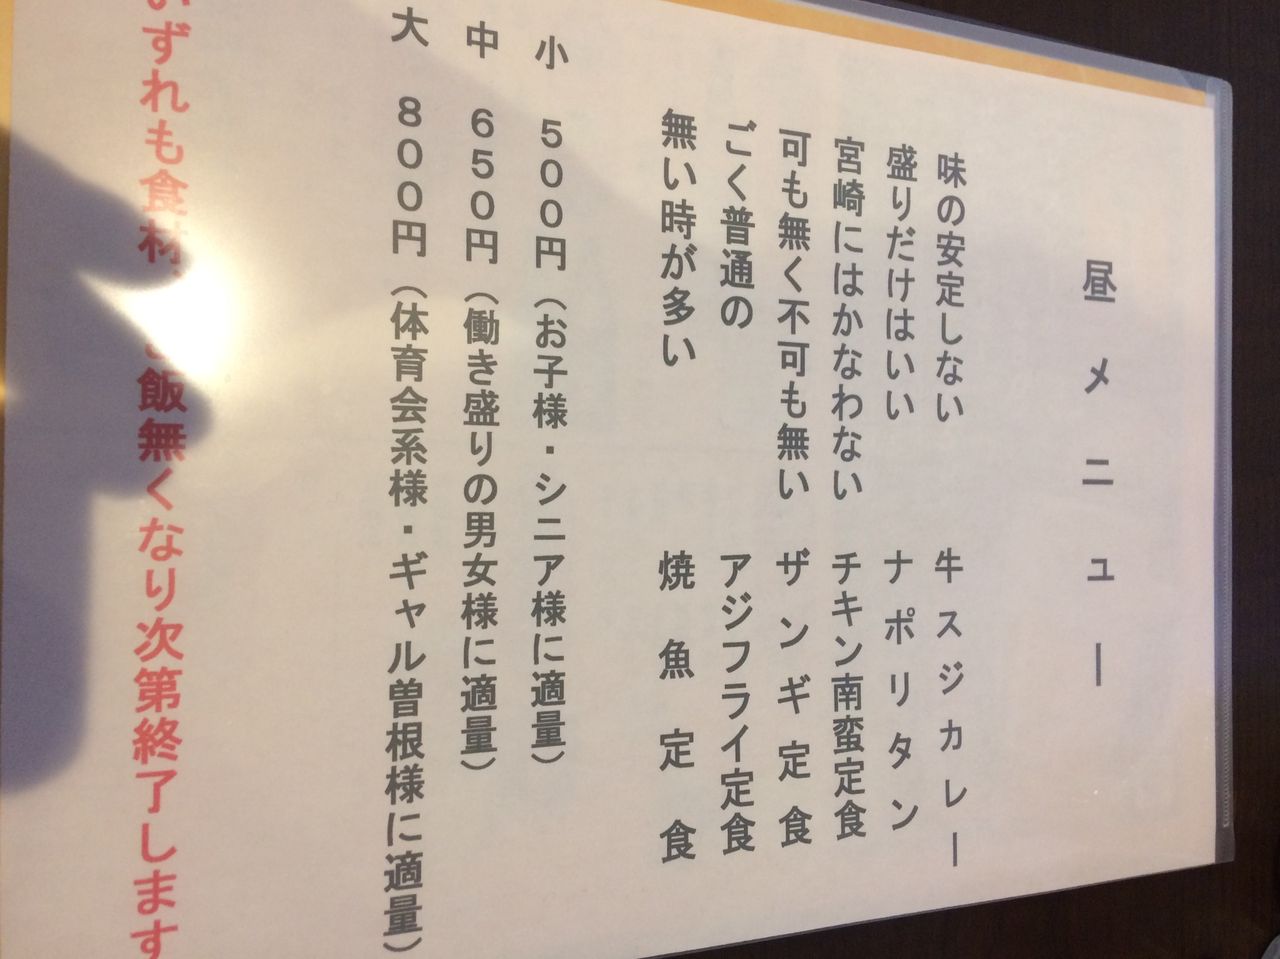 昼メニュー
味の安定しない 牛スジカレー
盛りだけはいい ナポリタン
宮崎にはかなわない チキン南蛮定食
可も無く不可も無い ザンギ定食
ごく普通の アジフライ定食
無い時が多い 焼魚定食
小 500円（お子様・シニア様に適量）
中 650円（働き盛りの男女様に適量）
大 800円（体育会系様・ギャル曽根様に適量）
いずれも食材、ご飯無くなり次第終了します